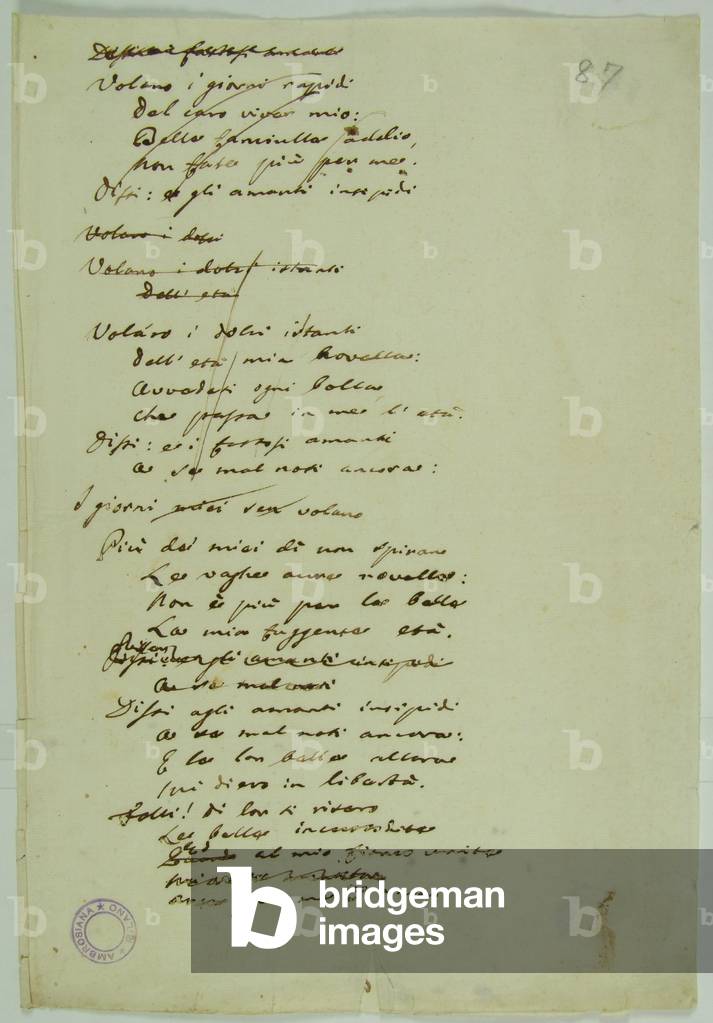 87
Volano i giorni rapidi
Del caro viver mio:
Belle fanciulle addio,
Non fate più per me.
Dissi: e gli amanti insipidi
Volaro i dolci
Volano i dolci istanti
Dell' età
Volaro i dolci istanti
Dell' età mia novella:
Avvedesi ogni bella
Che passa in me l' età.
Dissi: e i fastosi amanti
A se mal noti ancora:
I giorni miei sen volano
Più de' miei dì non spirano
Le vaghe aure novelle:
Non è più per le belle
La mia fuggente età.
gli amanti insipidi
A se mal noti
Dissi agli amanti insipidi
A se mal noti ancora:
E le lor belle allora
Mi diero in libertà.
Folli! di lor si risero
Le belle
al mio fianco unite
AMBROSIANA ★ MILANO ★
b bridgeman
images